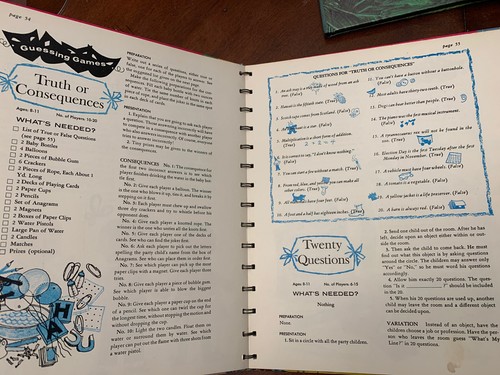 page 54
Guessing Games
Truth or
Consequences
Ages: 8-11 No. of Players: 10-20
WHAT'S NEEDED?
List of True or False Questions
(see page 55)
2 Baby Bottles
4 Balloons
2 Pieces of Bubble Gum
6 Crackers
2 Pieces of Rope, Each About 1
Yd. Long
2 Decks of Playing Cards
2 Paper Cups
2 Pencils
2 Set of Anagrams
2 Magnets
2 Boxes of Paper Clips
2 Water Pistols
Large Pan of Water
2 Candles
Matches
Prizes (optional)
PREPARATION
PRESENTATION
1. Explain that you are going to ask each player
a question. Those answering incorrectly will have
to compete in a consequence with another player
who also answers incorrectly.
CONSEQUENCES No. 1: The consequence for
the first two incorrect answers is to see which
player finishes drinking the water in the baby bottle
first.
No. 2: Give each player a balloon. The winner
is the one who blows it up, ties it, and breaks it by
stepping on it first.
No. 3: Each player must chew up and swallow
three dry crackers and try to whistle before his
opponent does.
No. 4: Give each player a knotted rope. The
winner is the one who unties all the knots first.
No. 5: Give each player one of the decks of
cards. See who can find the jokers first.
No. 6: Ask each player to pick out the letters
spelling the party child's name from the box of
Anagrams. See who can place them in order first.
No. 7: See which player can pick up the most
paper clips with a magnet. Give each player three
turns.
No. 8: Give each player a piece of bubble gum.
See which player is able to blow the biggest
bubble.
No. 9: Give each player a paper cup on the end
of a pencil. See which one can twirl the cup for
the longest time, without stopping the motion and
without dropping the cup.
No. 10: Light the two candles. Float them on
water or surround them by water. See which
player can put out the flame with three shots from
a water pistol.
page 55
QUESTIONS FOR "TRUTH OR CONSEQUENCES"
2. Hawaii is the fiftieth state. (True)
3. Scotch tape comes from Scotland. (False)
5. Multiplication is a short form of addition. (True)
6. It is correct to say, "I don't know nothing." (False)
7. You can start a fire without a match. (True)
10. A foot and a half has eighteen inches. (True)
11. You can't have a button without a buttonhole. (False)
12. Most adults have thirty-two teeth. (True)
13. Dogs can hear better than people. (True)
14. The piano was the first musical instrument. (False)
16. Election Day is the first Tuesday after the first
Monday in November. (True)
17. A vehicle must have four wheels. (False)
18. A tomato is a vegetable. (False)
20. A hero is always red. (False)
Twenty
Questions
Ages: 8-11 No. of Players: 6-15
WHAT'S NEEDED?
Nothing
PREPARATION
None
PRESENTATION
1. Sit in a circle with all the party children.
2. Send one child out of the room. After he has
left, decide upon an object either within or out-
side the room.
3. Then ask the child to come back. He must
find out what this object is by asking questions
around the circle. The children may answer only
"Yes" or "No," so he must word his questions
accordingly.
4. Allow him exactly 20 questions. The ques-
tion "Is it a ______?" should be included
in the 20.
5. When his 20 questions are used up, another
child may leave the room and a different object
can be decided upon.
VARIATION Instead of an object, have the
children choose a job or profession. Have the per-
son who leaves the room guess "What's My
Line?" in 20 questions.